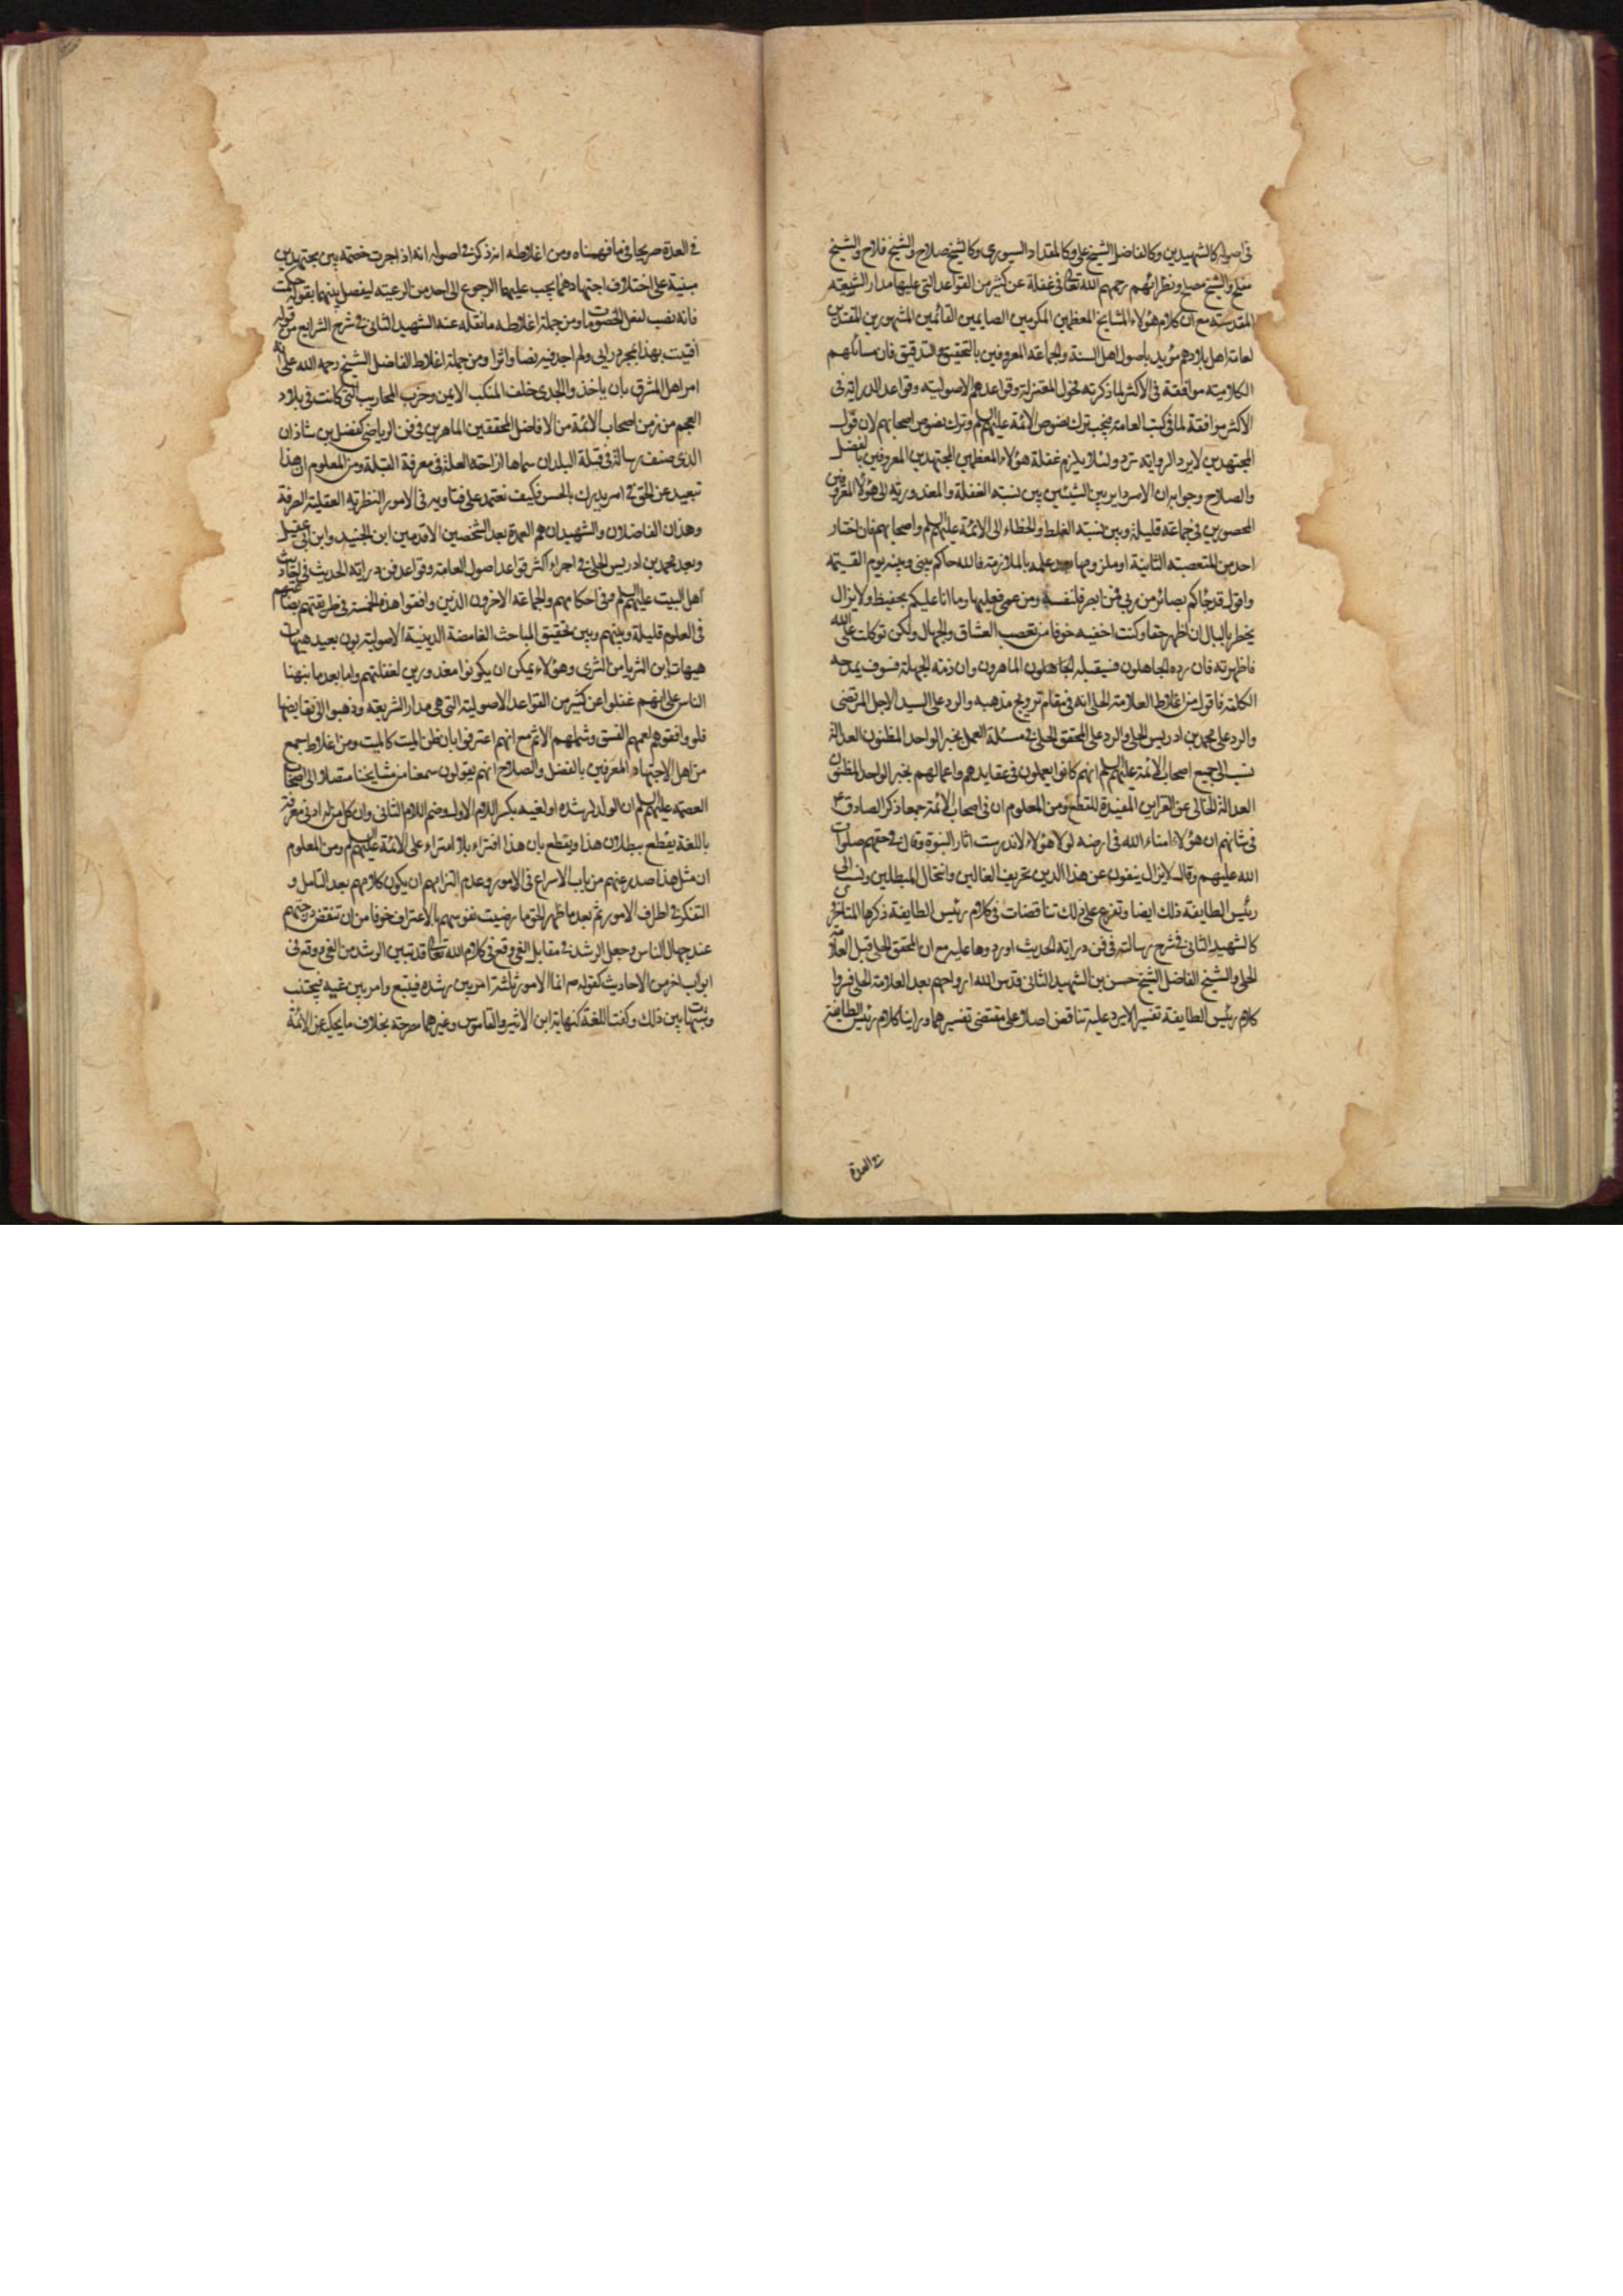 في اصوله كالشهيدين وكالفاضل الشيخ علي وكالمقداد السيوري وكالشيخ صلاح والشيخ فلاح والشيخ
مفلح والشيخ مصلح ونظرائهم رحمهم الله تعالى في غفلة عن كثير من القواعد التي عليها مدار الشريعة
المقدسة مع ان كلام هؤلاء المشايخ المعظمين المكرمين الصايمين القائمين المشهورين المقتدين
لعامة اهل بلادهم مؤيد باصول اهل السنة والجماعة المعروفين بالتحقيق والتدقيق فان مسائلهم
الكلامية موافقة في الاكثر لما ذكرته فحول المعتزلة وقواعدهم الاصولية وقواعد الدراية في
الاكثر موافقة لما في كتب العامة فيجب ترك نصوص الائمة عليهم السلم وترك نصوص اصحابهم لان قول
المجتهدين لا يرد الرواية ترد ولئلا يلزم غفلة هؤلاء المعظمين المجتهدين المعروفين بالفضل
والصلاح وجوابه ان الامر داير بين الشيئين بين نسبة الغفلة والمعذورية الى هؤلاء المعروفين
المحصورين في جماعة قليلة وبين نسبة الغلط والخطاء الى الائمة عليهم السلم واصحابهم فان اختار
احد من المتعصبة الثانية او ملزومها بعد علمه بالملازمة فالله حاكم بيني وبينه يوم القيمة
واقول قد جاكم بصائر من ربي فمن ابصر فلنفسه ومن عمي فعليها وما انا عليكم بحفيظ ولا يزال
يخطر بالبال ان اظهر حقا وكنت اخفيه خوفا من تعصب العشاق والجهال ولكن توكلت على الله
فاظهرته فان رده الجاهلون فسيقبله الماهرون وان ذمته الجهلة فسوف يمدحه
الكملة فاقول من اغلاط العلامة الحلي انه في مقام ترويج مذهبه والرد على السيد الاجل المرتضى
والرد على محمد بن ادريس الحلي والرد على المحقق الحلي في مسئلة العمل بخبر الواحد المظنون العدالة
نسب الى جميع اصحاب الائمة عليهم السلم انهم كانوا يعملون في عقايدهم واعمالهم بخبر الواحد المظنون
العدالة الخالي عن القراين المفيدة للقطع ومن المعلوم ان في اصحاب الائمة جمعا ذكر الصادق ع
في شانهم ان هؤلاء امناء الله في ارضه لولا هؤلاء لاندرست اثار النبوة وقال في حقهم صلوات
الله عليهم وقال لا يزال ينفون عن هذا الدين تحريف الغالين وانتحال المبطلين ونسب الى
رئيس الطايفة ذلك ايضا وتفرع على ذلك تناقضات في كلام رئيس الطايفة ذكرها المتاخرين
كالشهيد الثاني في شرح رسالته في فن دراية الحديث اوردوها عليه مع ان المحقق الحلي قبل العلامة
الحلي والشيخ الفاضل الشيخ حسن بن الشهيد الثاني قدس الله ارواحهم بعد العلامة الحلي فسروا
كلام رئيس الطايفة تفسيرا لا يرد عليه تناقض اصلا على مقتضى تفسيرهما وراينا كلام رئيس الطايفة
في العدة
في العدة صريحا في ما فهمناه ومن اغلاطه انه ذكر في اصوله انه اذا جرت خصمة بين مجتهدين
مبنية على اختلاف اجتهادهما يجب عليهما الرجوع الى احد من الرعية ليفصل بينهما بقوله حكمت
فانه نصب لفصل الخصومات ومن جملة اغلاطه ما نقله عنه الشهيد الثاني في شرح الشرايع من قوله
افتيت بهذا بمجرد رايي ولم اجد فيه نصا واثرا ومن جملة اغلاط الفاضل الشيخ علي رحمه الله انه
امر اهل المشرق بان ياخذوا الجدي خلف المنكب الايمن وخرب المحاريب التي كانت في بلاد
العجم من زمن اصحاب الائمة من الافاضل المحققين الماهرين في فن الرياضي كفضل بن شاذان
الذي صنف رسالة في قبلة البلدان سماها ازاحة العلة في معرفة القبلة ومن المعلوم ان هذا
تبعيد عن الحق في امر يدرك بالحس فكيف نعتمد على فتاويه في الامور النظرية العقلية الصرفة
وهذان الفاضلان والشهيدان هم العمدة بعد الشخصين الاقدمين ابن الجنيد وابن ابي عقيل
وبعد محمد بن ادريس الحلي في اجراء اكثر قواعد اصول العامة وقواعد فن دراية الحديث في احاديث
اهل البيت عليهم السلم وفي احكامهم والجماعة الاخرون الذين وافقوا هذه الخمسة في طريقتهم بضاعتهم
في العلوم قليلة وبينهم وبين تحقيق المباحث الغامضة الدينية الاصولية بون بعيد هيهات
هيهات اين الثريا من الثرى وهؤلاء يمكن ان يكونوا معذورين لغفلتهم واما بعد ما نبهنا
الناس على انهم غفلوا عن كثير من القواعد الاصولية التي هي مدار الشريعة وذهبوا الى نقايضها
فلو وافقوهم لعمهم الفسق وشملهم الاثم مع انهم اعترفوا بان ظن الميت كالميت ومن اغلاط جمع
من اهل الاجتهاد المعروفين بالفضل والصلاح انهم يقولون سمعنا من مشايخنا متصلا الى اصحاب
العصمة عليهم السلم ان الولد لرشده او لغيه بكسر اللام الاول وضم اللام الثاني وان كل من له ادنى معرفة
باللغة يقطع ببطلان هذا ويقطع بان هذا افتراء بلا امتراء على الائمة عليهم السلم ومن المعلوم
ان مثل هذا صدر عنهم من باب الاسراع في الامور وعدم التزامهم ان يكون كلامهم بعد التامل و
التفكر في اطراف الامور ثم بعد ما ظهر الحق ما رضيت نفوسهم بالاعتراف خوفا من ان تنقض درجتهم
عند جهال الناس وجعل الرشد في مقابل الغي وقع في كلام الله تعالى قد تبين الرشد من الغي ووقع في
ابواب اخر من الاحاديث كقوله ص انما الامور ثلثة امر بين رشده فيتبع وامر بين غيه فيجتنب
وشبهات بين ذلك وكتب اللغة كنهاية ابن الاثير والقاموس وغيرهما صرحت بخلاف ما يحكى عن الائمة